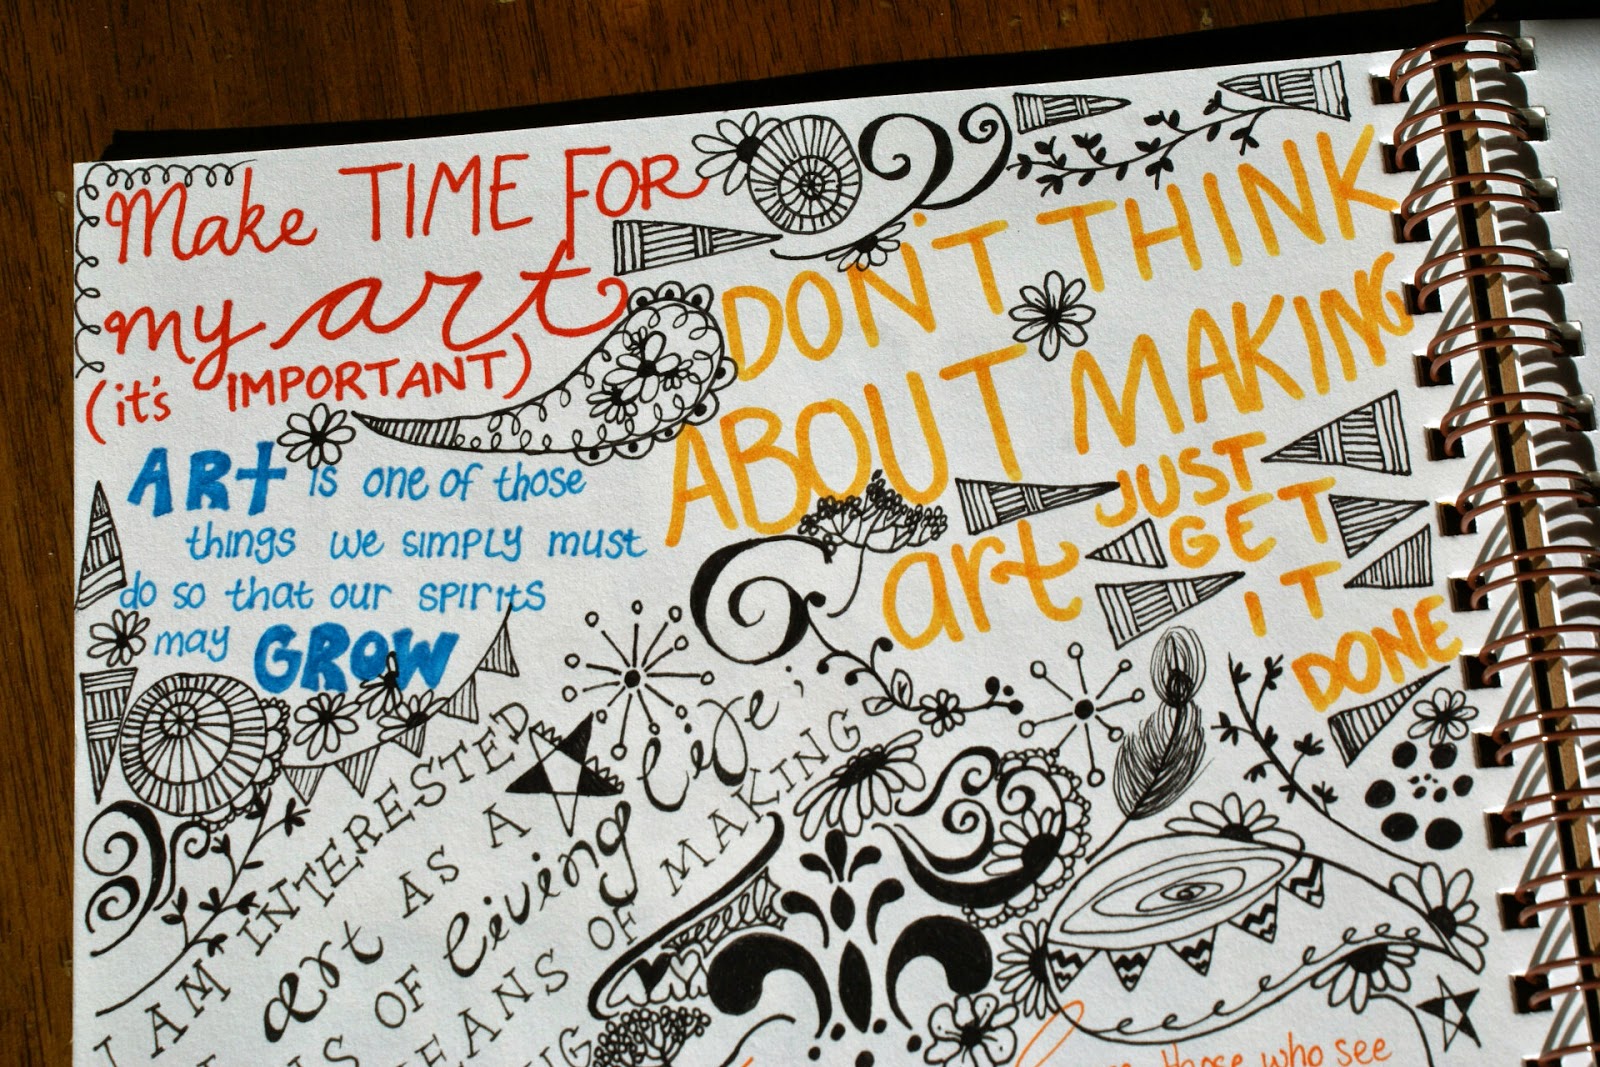 Make TIME FOR
my art
(it's IMPORTANT)
DON'T THINK
ABOUT MAKING
art JUST
GET
IT
DONE
ART is one of those
things we simply must
do so that our spirits
may GROW
I AM INTERESTED
art AS A living life,
OF MEANS OF MAKING
those who see